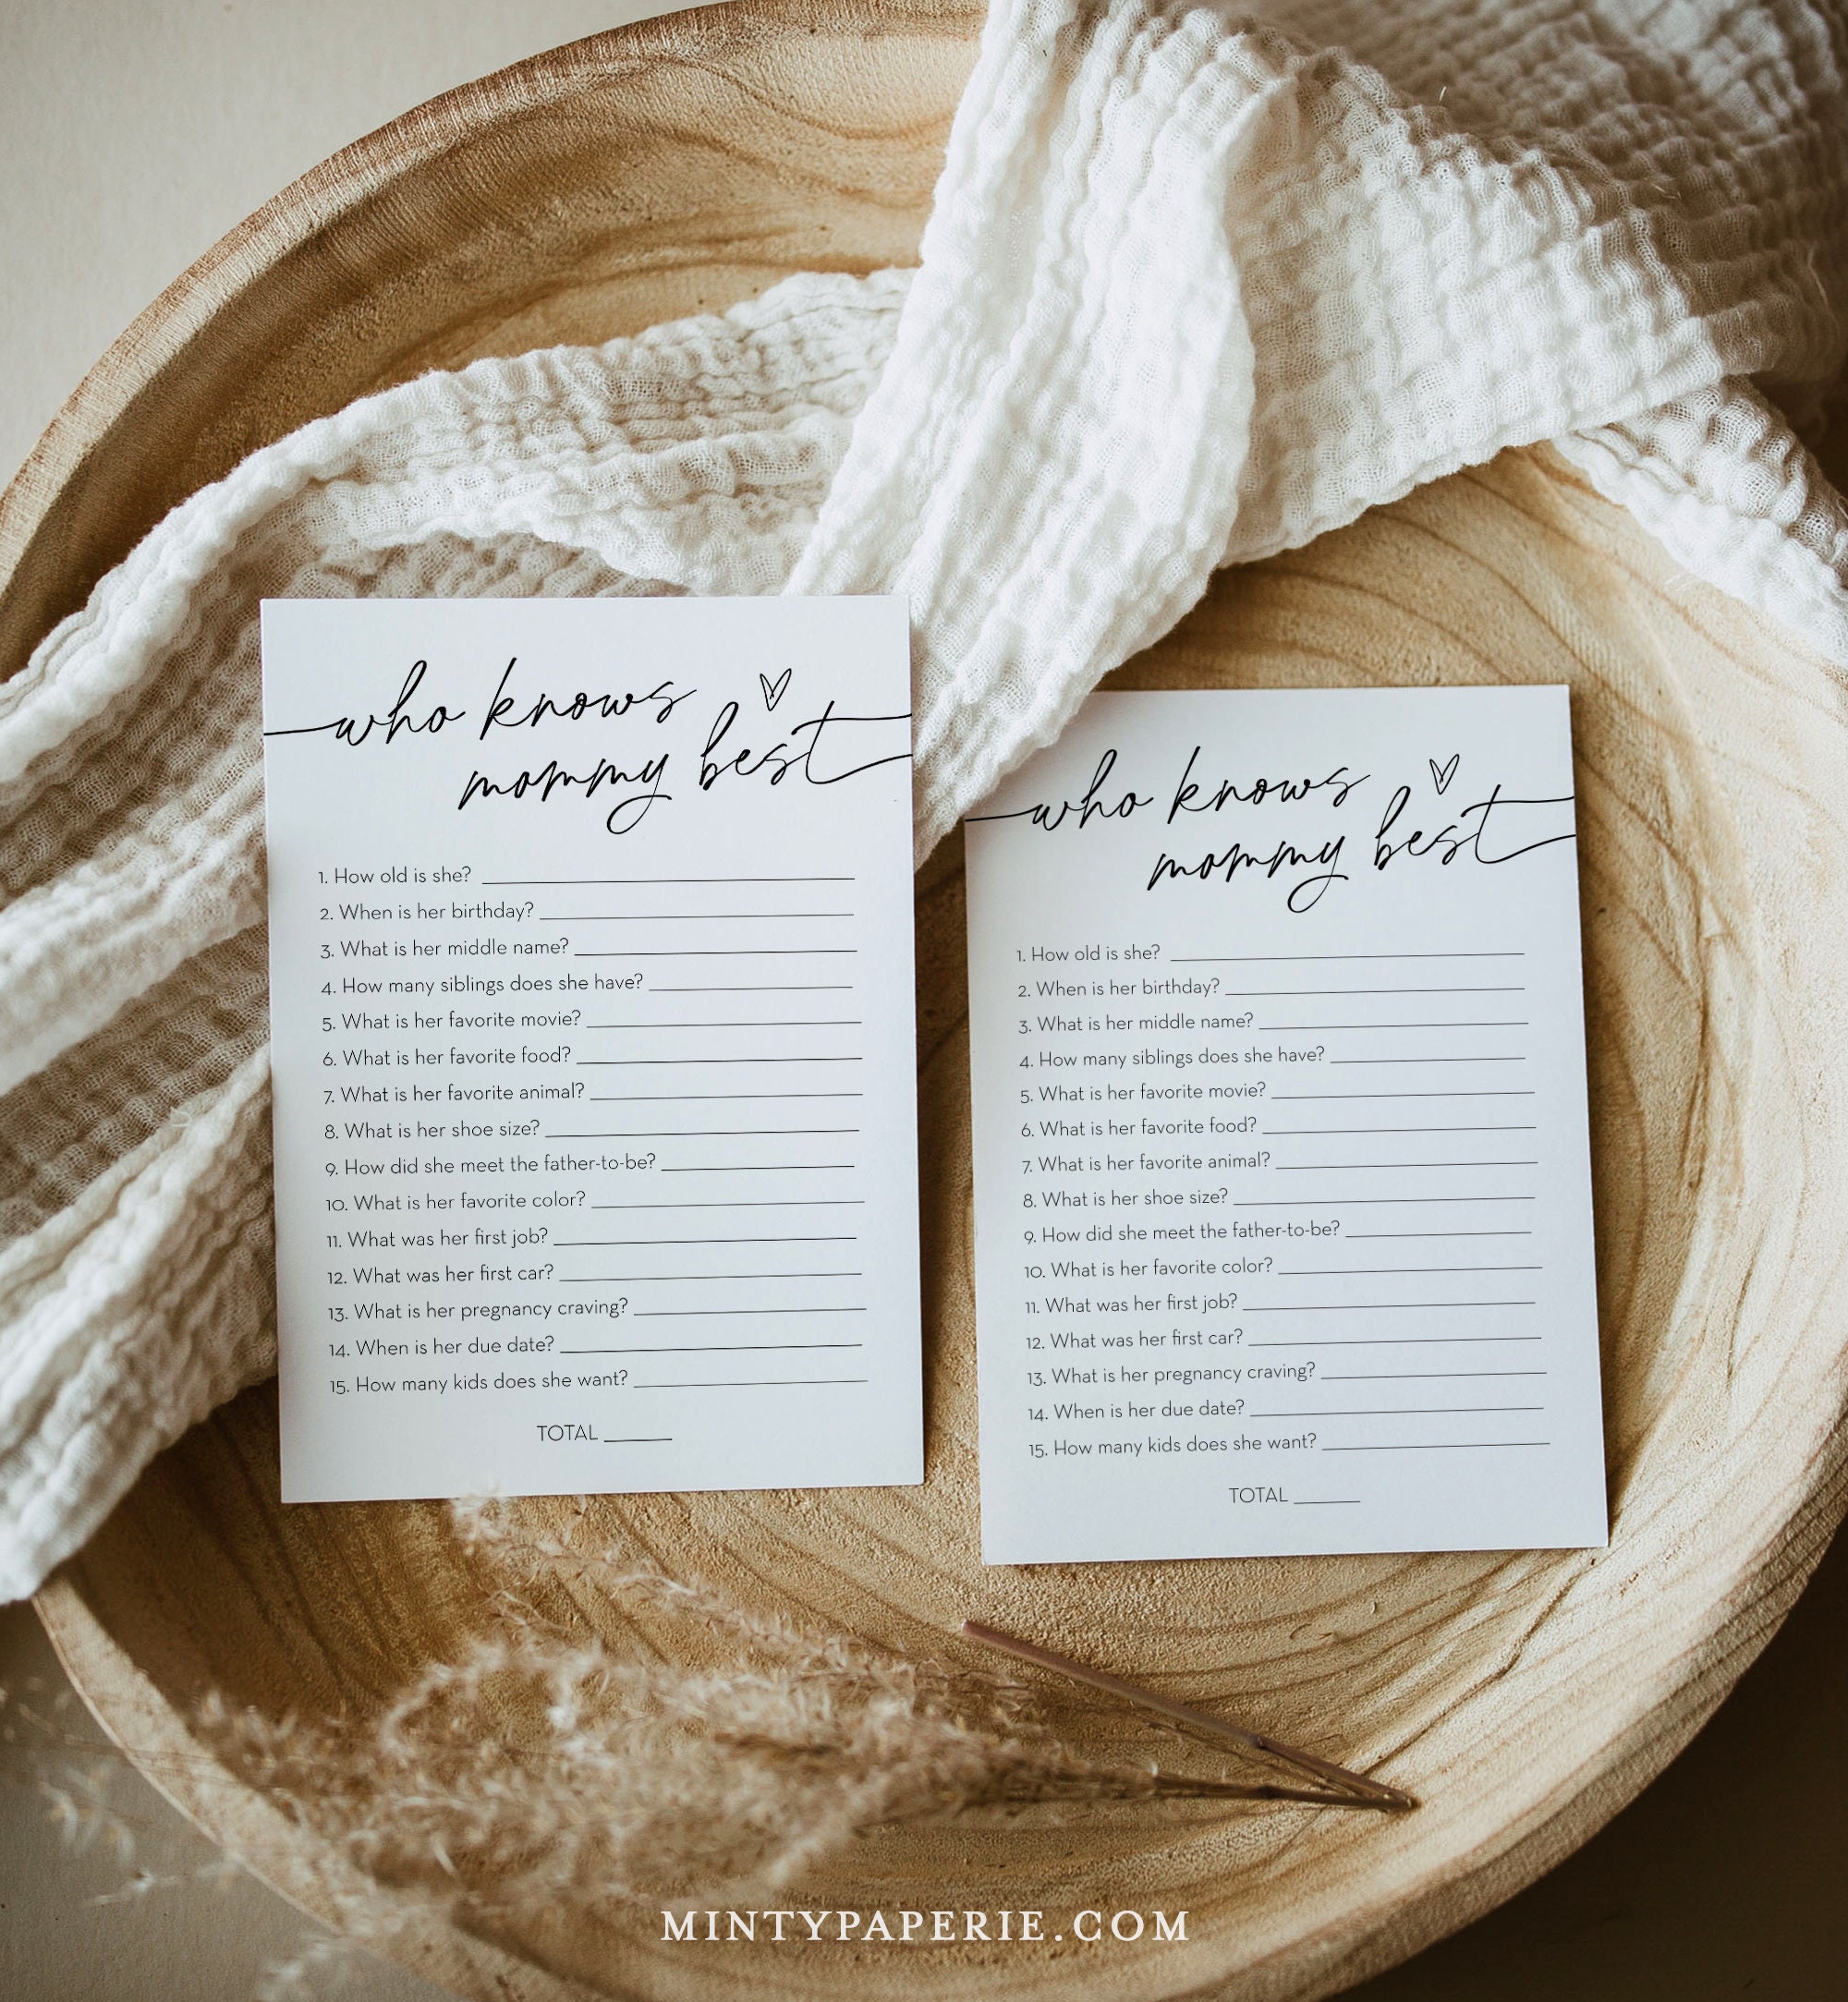 who knows
mommy best
1. How old is she?
2. When is her birthday?
3. What is her middle name?
4. How many siblings does she have?
5. What is her favorite movie?
6. What is her favorite food?
7. What is her favorite animal?
8. What is her shoe size?
9. How did she meet the father-to-be?
10. What is her favorite color?
11. What was her first job?
12. What was her first car?
13. What is her pregnancy craving?
14. When is her due date?
15. How many kids does she want?
TOTAL
who knows
mommy best
1. How old is she?
2. When is her birthday?
3. What is her middle name?
4. How many siblings does she have?
5. What is her favorite movie?
6. What is her favorite food?
7. What is her favorite animal?
8. What is her shoe size?
9. How did she meet the father-to-be?
10. What is her favorite color?
11. What was her first job?
12. What was her first car?
13. What is her pregnancy craving?
14. When is her due date?
15. How many kids does she want?
TOTAL
MINTYPAPERIE.COM